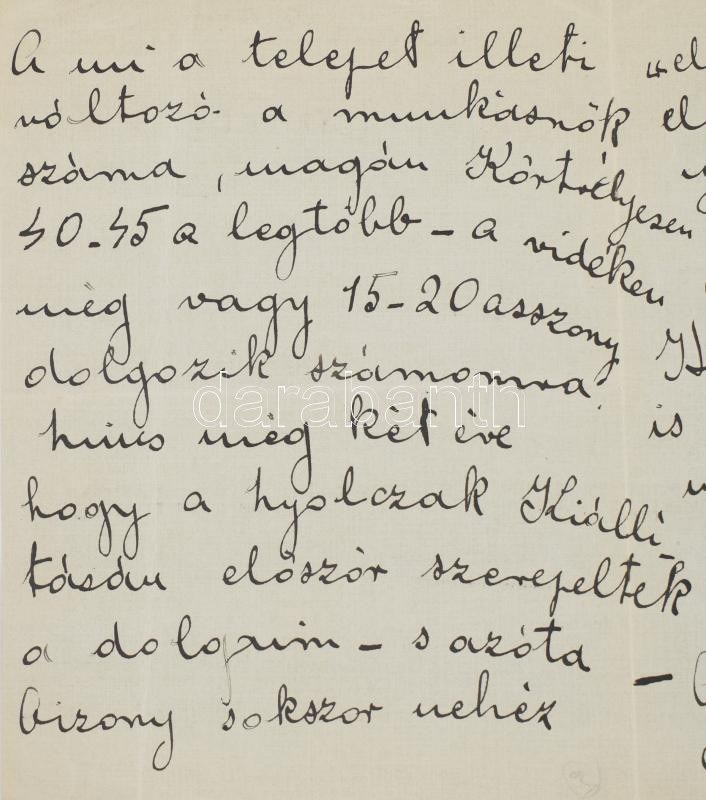 A mi a telepet illeti „el
változó a munkásnők el
száma, magán Körtvélyesen
40-45 a legtöbb – a vidéken
még vagy 15-20 asszony
dolgozik számomra
darabanth
nincs még két éve is
hogy a nyolczak Kiállí-
tásán először szerepeltek
a dolgaim – s azóta –
bizony sokszor nehéz